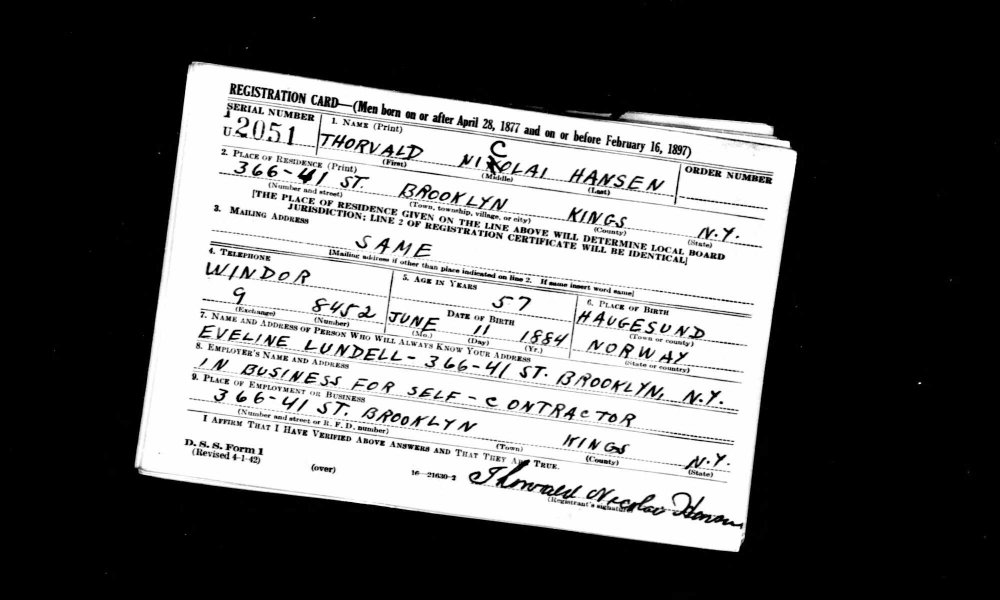 REGISTRATION CARD—(Men born on or after April 28, 1877 and on or before February 16, 1897)
SERIAL NUMBER
1. NAME (Print)
ORDER NUMBER
U 2051
THORVALD NICOLAI HANSEN
(First) (Middle) (Last)
2. PLACE OF RESIDENCE (Print)
366-41 ST. BROOKLYN KINGS N.Y.
(Number and street) (Town, township, village, or city) (County) (State)
[THE PLACE OF RESIDENCE GIVEN ON THE LINE ABOVE WILL DETERMINE LOCAL BOARD
JURISDICTION; LINE 2 OF REGISTRATION CERTIFICATE WILL BE IDENTICAL]
3. MAILING ADDRESS
SAME
[Mailing address if other than place indicated on line 2. If same insert word same]
4. TELEPHONE
5. AGE IN YEARS
6. PLACE OF BIRTH
WINDOR
57
HAUGESUND
(Town or county)
DATE OF BIRTH
9 8452
JUNE 11 1884
NORWAY
(Exchange) (Number)
(Mo.) (Day) (Yr.)
(State or country)
7. NAME AND ADDRESS OF PERSON WHO WILL ALWAYS KNOW YOUR ADDRESS
EVELINE LUNDELL-366-41 ST. BROOKLYN, N.Y.
8. EMPLOYER'S NAME AND ADDRESS
IN BUSINESS FOR SELF-CONTRACTOR
9. PLACE OF EMPLOYMENT OR BUSINESS
366-41 ST. BROOKLYN KINGS N.Y.
(Number and street or R. F. D. number) (Town) (County) (State)
I AFFIRM THAT I HAVE VERIFIED ABOVE ANSWERS AND THAT THEY ARE TRUE.
D. S. S. Form 1
(Revised 4-1-42)
(over)
16—21630-2
Thorvald Nicolai Hansen
(Registrant's signature)